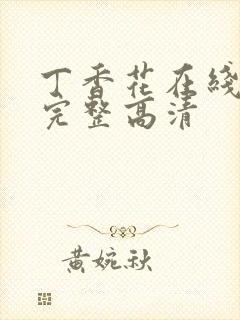 丁香花在綫
完整高清
黄婉秋